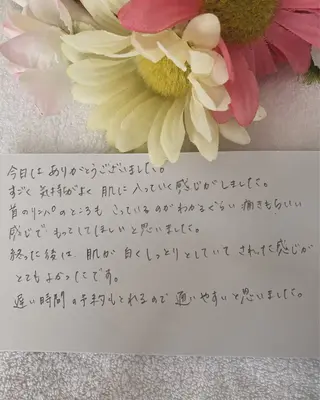 今日は ありがとうございました。
すごく 気持がよく 肌に入っていく感じがしました。
首のリンパのところも こっているのがわかるぐらい 痛きもちいい
感じで もってしてほしいと思いました。
終った後は、肌が白くしっとりとしていて された感じが
とてもよかったです。
遅い時間の予約もとれるので 通いやすいと思いました。